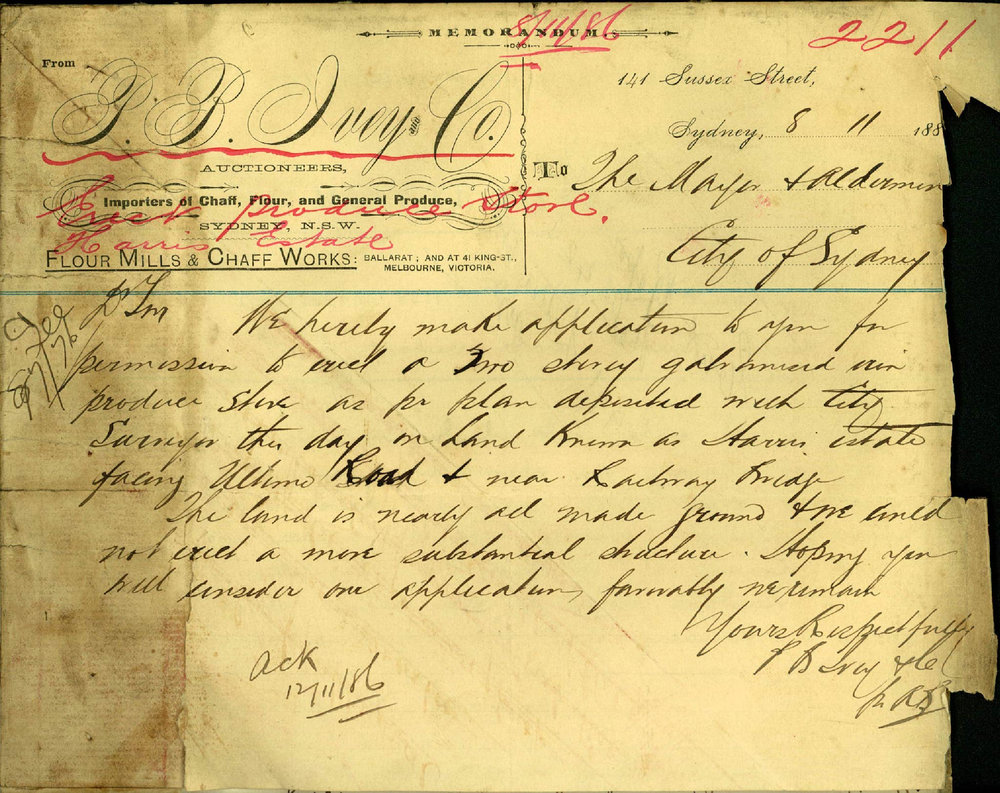 MEMORANDUM.
8/11/86
2211
From
P. B. Ivey and Co.
AUCTIONEERS,
Importers of Chaff, Flour, and General Produce,
SYDNEY, N.S.W.
Erect produce Store.
Harris Estate
FLOUR MILLS & CHAFF WORKS: BALLARAT; AND AT 41 KING-ST., MELBOURNE, VICTORIA.
141 Sussex Street,
Sydney, 8 11 188
To The Mayor & Aldermen
City of Sydney
D Sir We hereby make application to you for
permission to erect a Two storey galvanised iron
produce Store as pr plan deposited with City
Surveyor this day on Land Known as Harris estate
facing Ultimo Road & near Railway Bridge
The land is nearly all made ground & we could
not erect a more substantial structure. Hoping you
will consider our application favorably we remain
Yours Respectfully
P B Ivey & Co
Ack
12/11/86